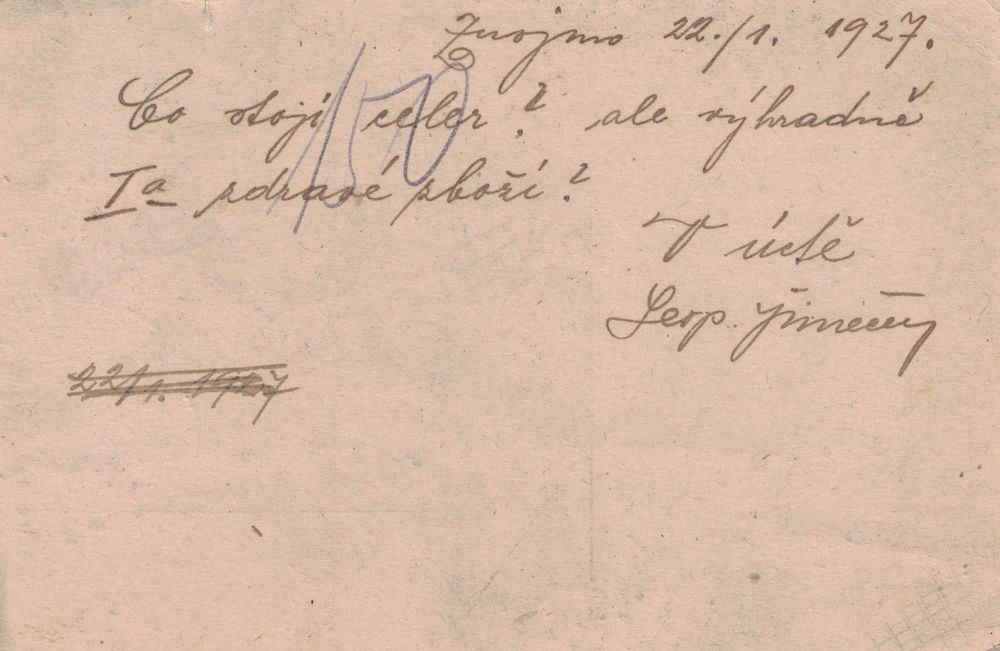 Znojmo 22./1. 1927.
Co stojí celer? ale výhradně
Ia zdravé zboží?
150
V úctě
Leop.
22/1. 1927